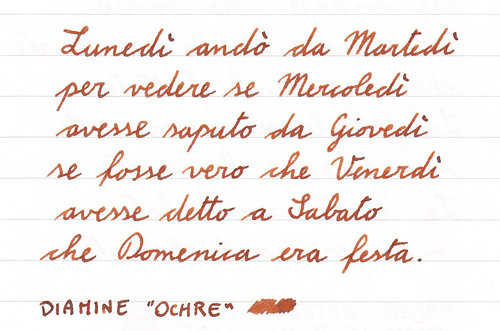 Lunedì andò da Martedì
per vedere se Mercoledì
avesse saputo da Giovedì
se fosse vero che Venerdì
avesse detto a Sabato
che Domenica era festa.
DIAMINE "OCHRE"